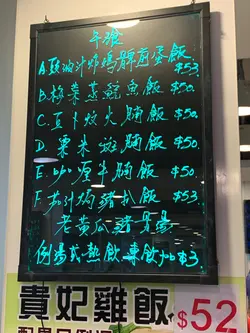 午飯
A.豉油汁炸鸡脾煎蛋飯 $53.
B.梅菜蒸鯇魚飯 $50.
C.豆卜炆火腩飯 $50.
D.粟米斑腩飯 $50.
E.咖喱牛腩飯 $50.
F.茄汁焗豬扒飯 $53.
老黄瓜豬骨湯
例湯或熱飲 凍飲加$3
貴妃雞飯 $52